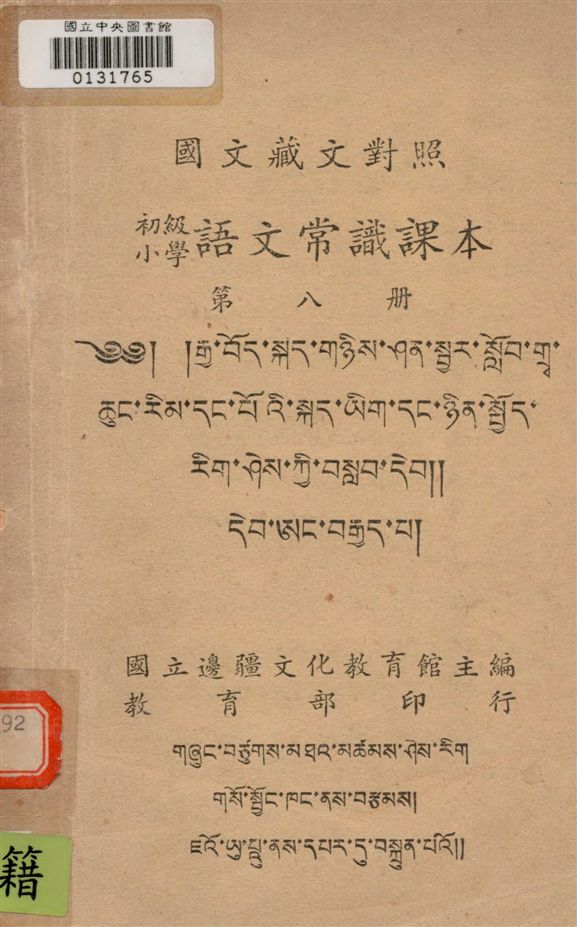 國立中央圖書館
0131765
國文藏文對照
初級小學語文常識課本
第八册
༄༅། །རྒྱ་བོད་སྐད་གཉིས་ཤན་སྦྱར་སློབ་གྲྭ་
ཆུང་རིམ་དང་པོ་འི་སྐད་ཡིག་དང་ཉིན་སྤྱོད་
རིག་ཤེས་ཀྱི་བསླབ་དེབ།།
དེབ་ཨང་བརྒྱད་པ།
國立邊疆文化教育館主編
教育部印行
གཞུང་བཙུགས་མཐའ་མཚམས་ཤེས་རིག
གསོ་སྤྱོང་ཁང་ནས་བརྩམས།
ཇའོ་ཡུ་པུུ་ནས་དཔར་དུ་བསྐྲུན་པའོ།།
92
籍